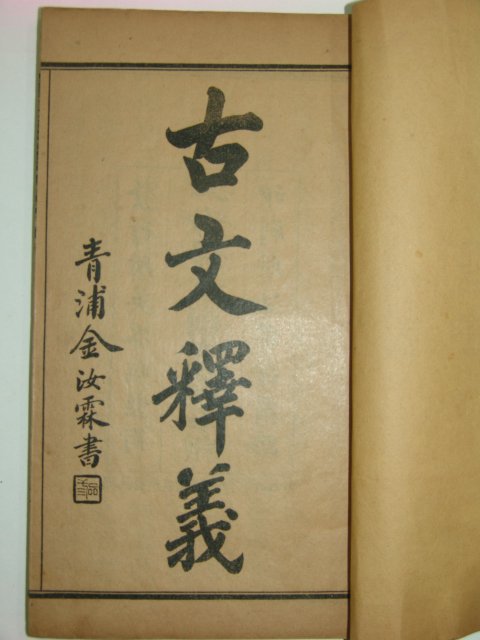 古文釋義
青浦金汝霖書